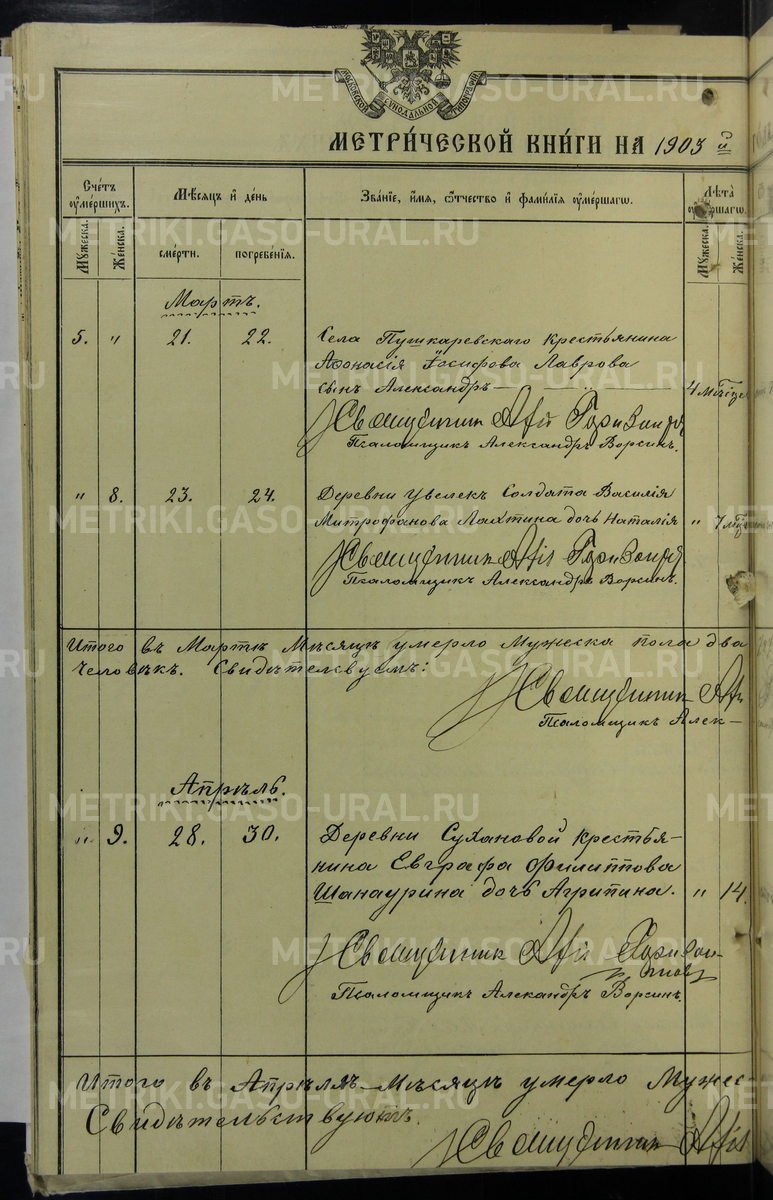 МОСКОВСКОЙ СѴНОДАЛЬНОЙ ТИПОГРАФІИ
МЕТРИ́ЧЕСКОЙ КНИ́ГИ НА 1903 й
Сче́тъ ᲂу҆ме́ршихъ.
Мꙋжеска.
Же́нска.
Мѣ́сѧцъ и҆ де́нь
сме́рти.
погребе́нїѧ.
Зва́нїе, и҆́мѧ, ѻ҆́тчество и҆ фами́лїѧ ᲂу҆ме́ршагѡ.
Лѣта̀
Мꙋжеска.
Же́нска.
Мартъ.
5. " 21. 22. Села Пушкаревскаго крестьянина
Аѳонасія Іосифова Лаврова
сынъ Александръ 4 мѣсяц
Священник
Псаломщикъ Александръ Ворсинъ.
" 8. 23. 24. Деревни Увелекъ Солдата Василія
Митрофанова Лахтина дочь Наталія " 7
Священник
Псаломщикъ Александръ Ворсинъ.
Итого въ Мартѣ Мѣсяцѣ умерло Мужеска пола два
человѣкъ. Свидѣтельсвуемъ:
Священник
Псаломщикъ Алек-
Апрѣль.
" 9. 28. 30. Деревни Сухановой крестья-
нина Евграфа Филиппова
Шанаурина дочь Агрипина. " 14.
Священник
Псаломщикъ Александръ Ворсинъ.
Итого въ Апрѣлѣ Мѣсяцѣ умерло Мужес
Свидѣтельствуютъ.
Священник
METRIKI.GASO-URAL.RU